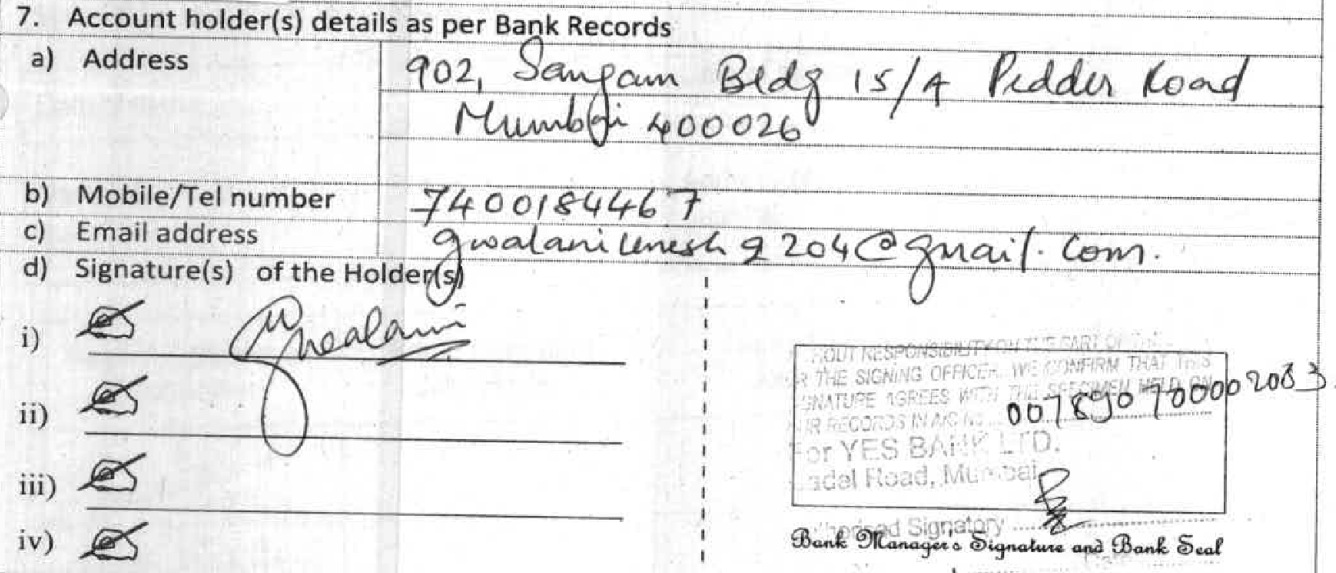 7. Account holder(s) details as per Bank Records
a) Address
902, Sangam Bldg 15/A Pedder Road
Mumbai 400026
b) Mobile/Tel number 7400184467
c) Email address gwalaniumesh9204@gmail.com.
d) Signature(s) of the Holder(s)
i) Gwalani
ii)
iii)
iv)
HOUT RESPONSIBILITY ON THE PART OF
R THE SIGNING OFFICER. WE CONFIRM THAT THIS
GNATURE AGREES WITH THE SPECIMEN HELD ON
UR RECORDS IN A/C NO.
For YES BANK LTD.
Road, Mumbai
Authorised Signatory
Bank Manager's Signature and Bank Seal